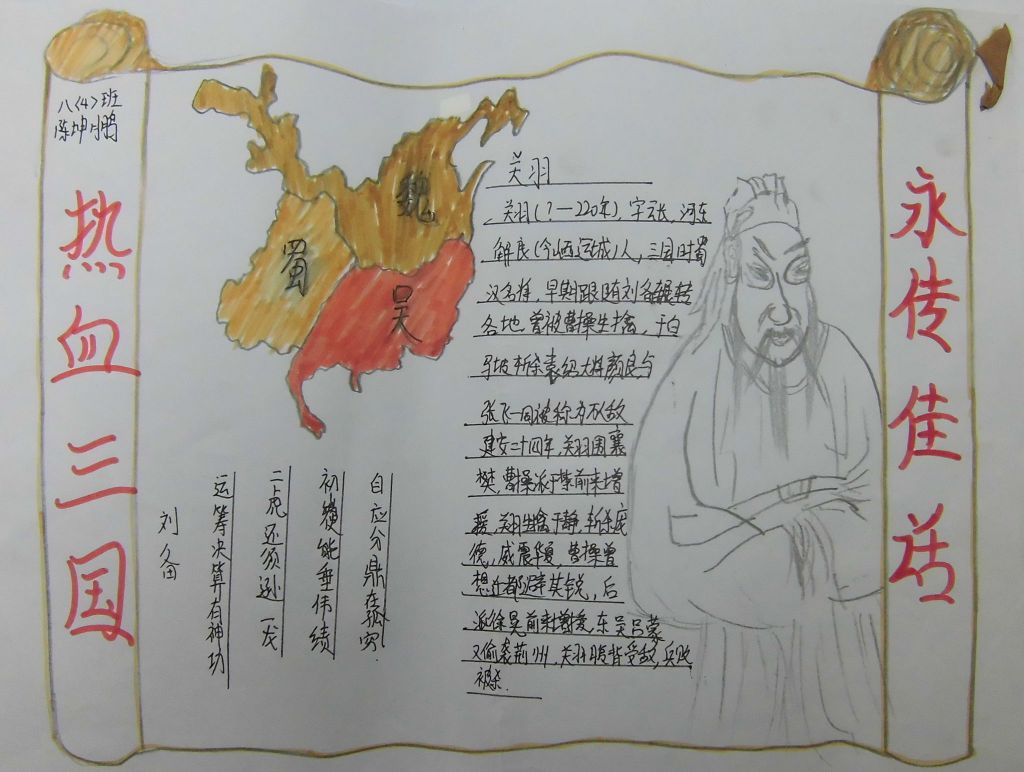 八〈4〉班
陈坤鹏
热血三国
魏
蜀
吴
关羽
关羽(？—220年)，字云长，河东
解良(今山西运城)人，三国时蜀
汉名将，早期跟随刘备辗转
各地，曾被曹操生擒，于白
马坡斩杀袁绍大将颜良与
张飞一同被称为万人敌
建安二十四年，关羽围襄
樊，曹操派于禁前来增
援，关羽生擒于静，斩杀庞
德，威震华夏，曹操曾
想迁都避其锐，后
派徐晃前来增援，东吴吕蒙
又偷袭荆州，关羽腹背受敌，兵败
被杀.
运筹决算有神功
二虎还须逊一龙
初出能垂伟绩
自应分鼎在孤穷.
刘备
永传佳话